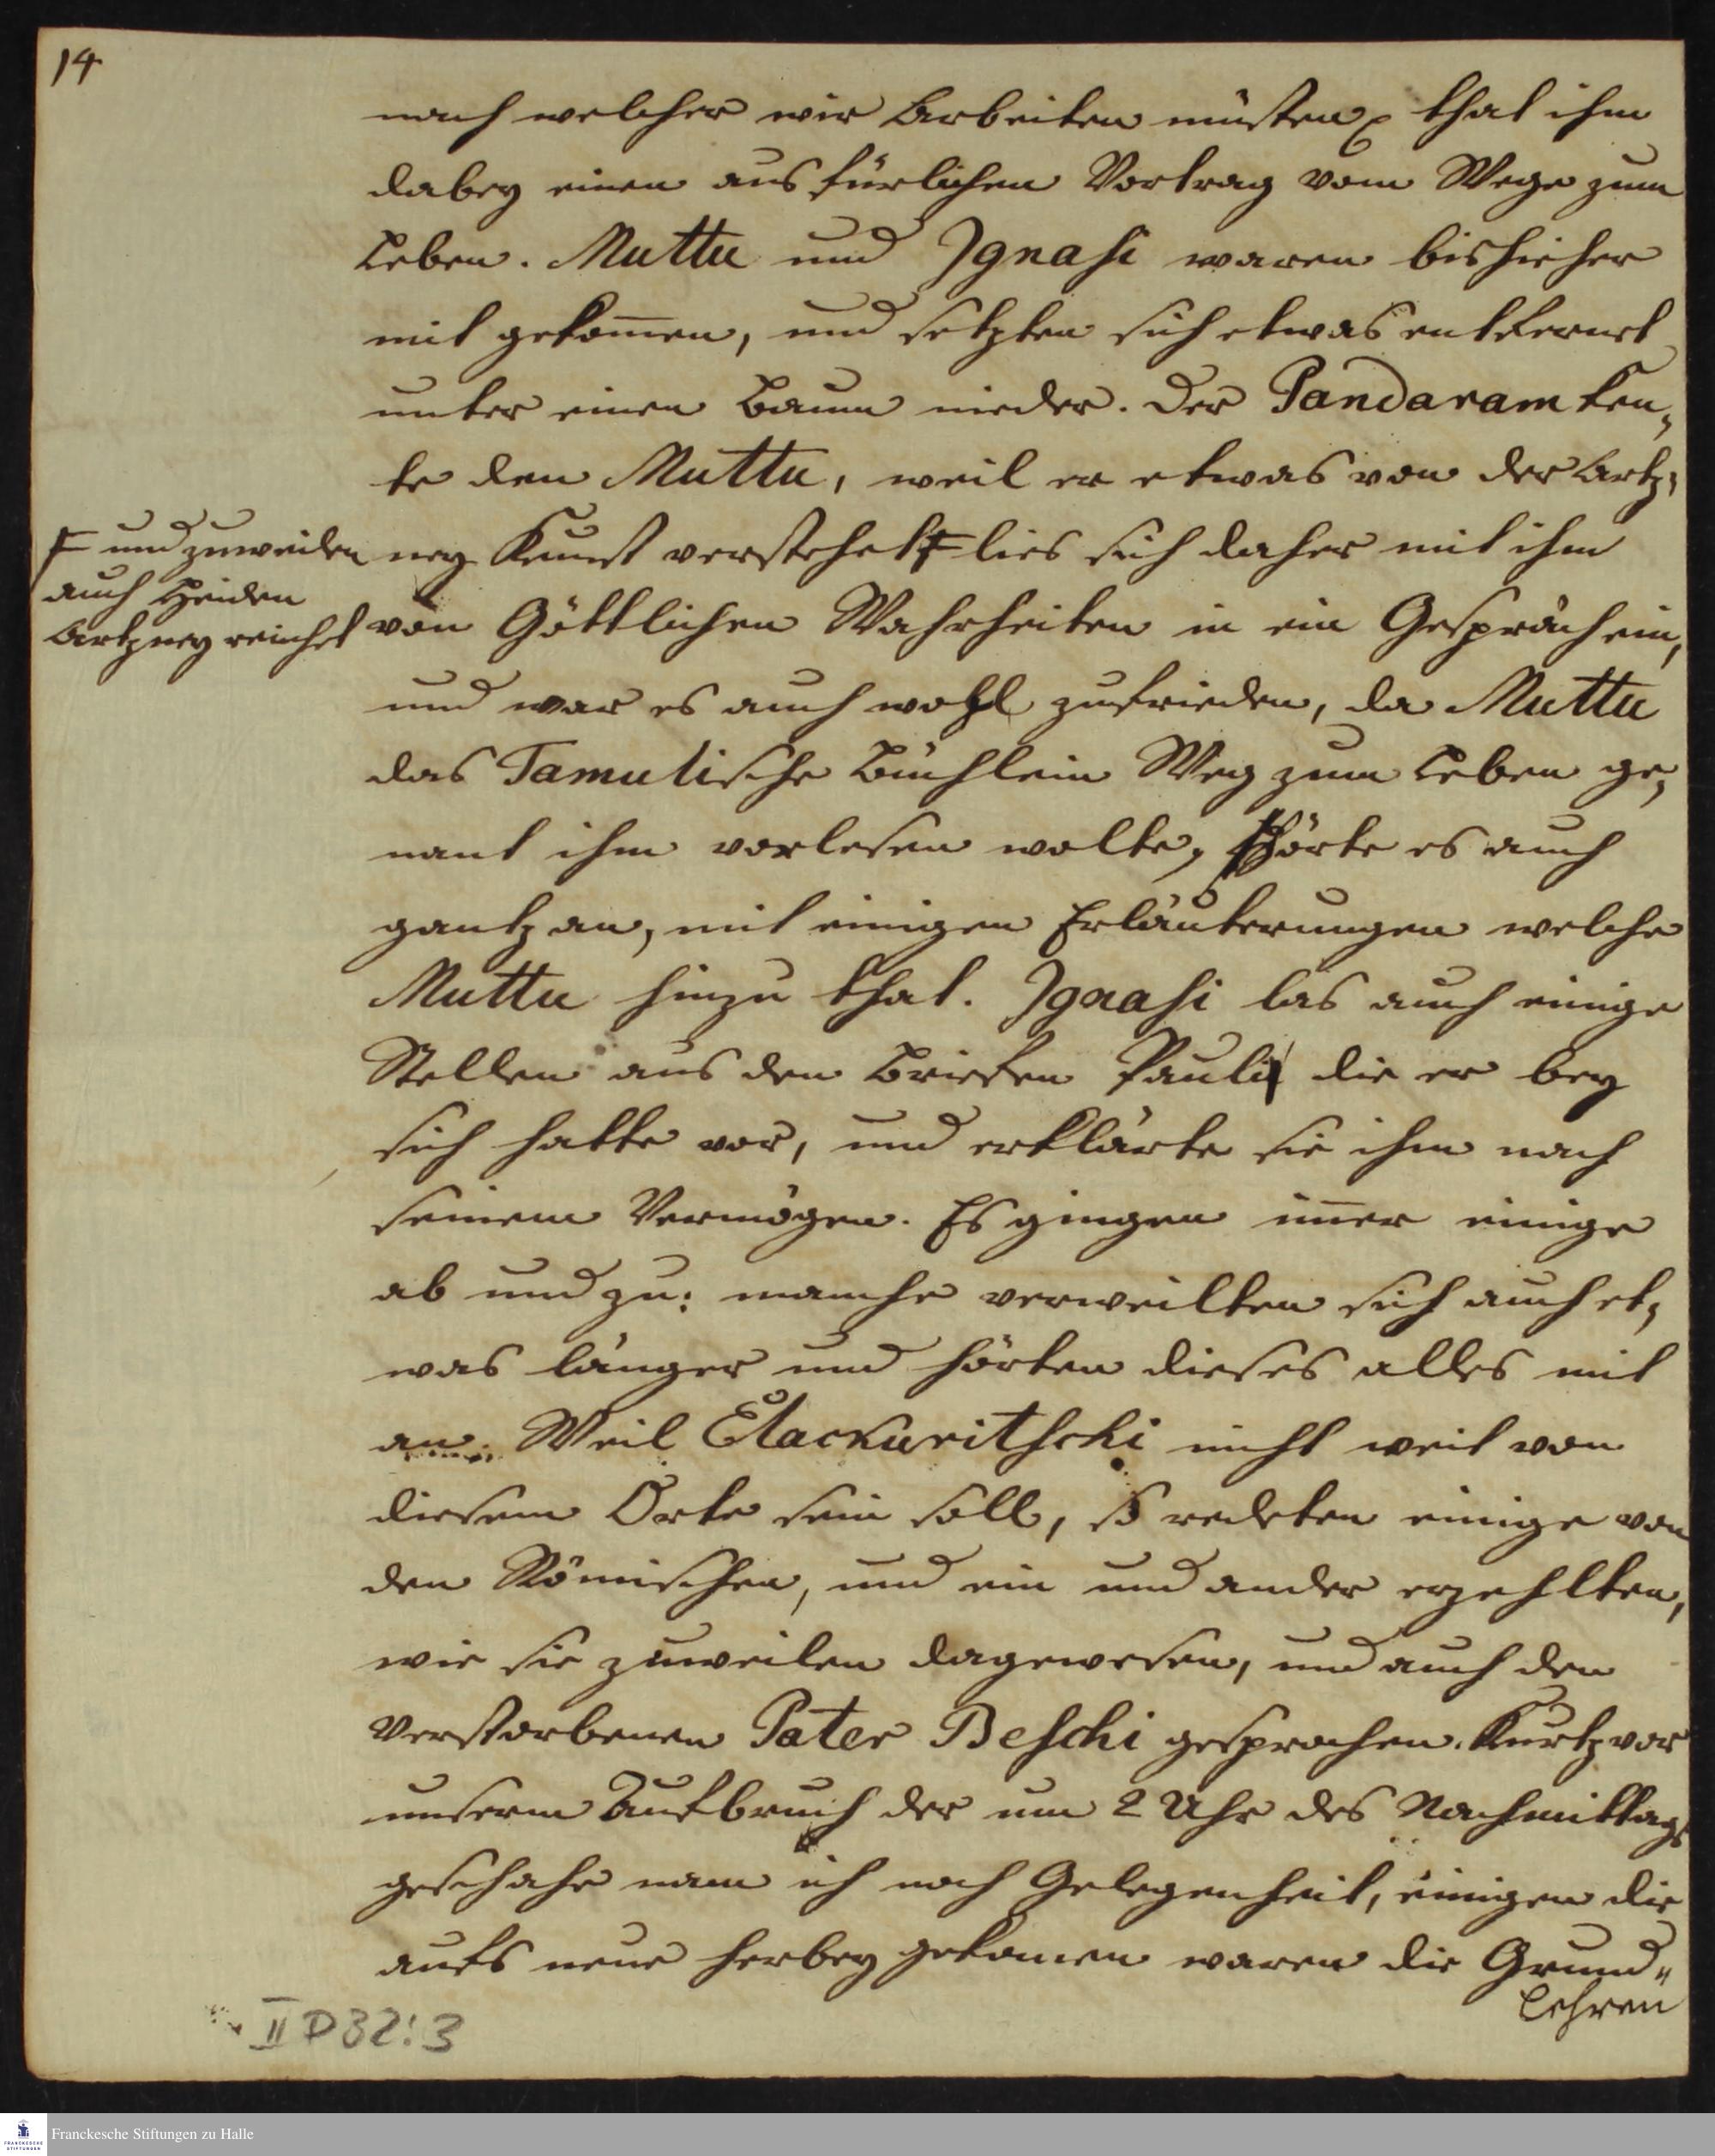 14
nach welcher wir Arbeiten müsten, that ihm
dabey einen ausfürlichen Vortrag vom Wege zum
Leben. Muttu und Ignasi waren bishieher
mit gekom̅en, und setzten sich etwas entfernet
unter einen Baum nieder. Der Pandaram ken-
te den Muttu, weil er etwas von der Artz-
ney Kunst verstehet ╪ lies sich daher mit ihm
╪ und zuweilen
auch Heiden
Artzney reichet
von Göttlichen Wahrheiten in ein Gespräch ein,
und war es auch wohl zufrieden, da Muttu
das Tamulische Büchlein Weg zum Leben ge-
nant ihm vorlesen wolte, Hörte es auch
gantz an, mit einigen Erläuterungen welche
Muttu hinzu that. Ignasi las auch einige
Stellen aus den Briefen Pauli die er bey
sich hatte vor, und erklärte sie ihm nach
seinem Vermögen. Es gingen im̅er einige
ab und zu: manche verweilten sich auch et-
was länger und hörten dieses alles mit
an. Weil Elackuritschi nicht weit von
diesem Orte sein soll, so redeten einige von
den Römischen, und ein und ander erzehlten,
wie sie zuweilen dagewesen, und auch den
verstorbenen Pater Beschi gesprochen. Kurtz vor
unserm Aufbruch der um 2 Uhr des Nachmittags
geschahe nam ich noch Gelegenheit, einigen die
aufs neue herbey gekomen waren die Grund-
Lehren
II D 32:3
Franckesche Stiftungen zu Halle
FRANCKESCHE STIFTUNGEN